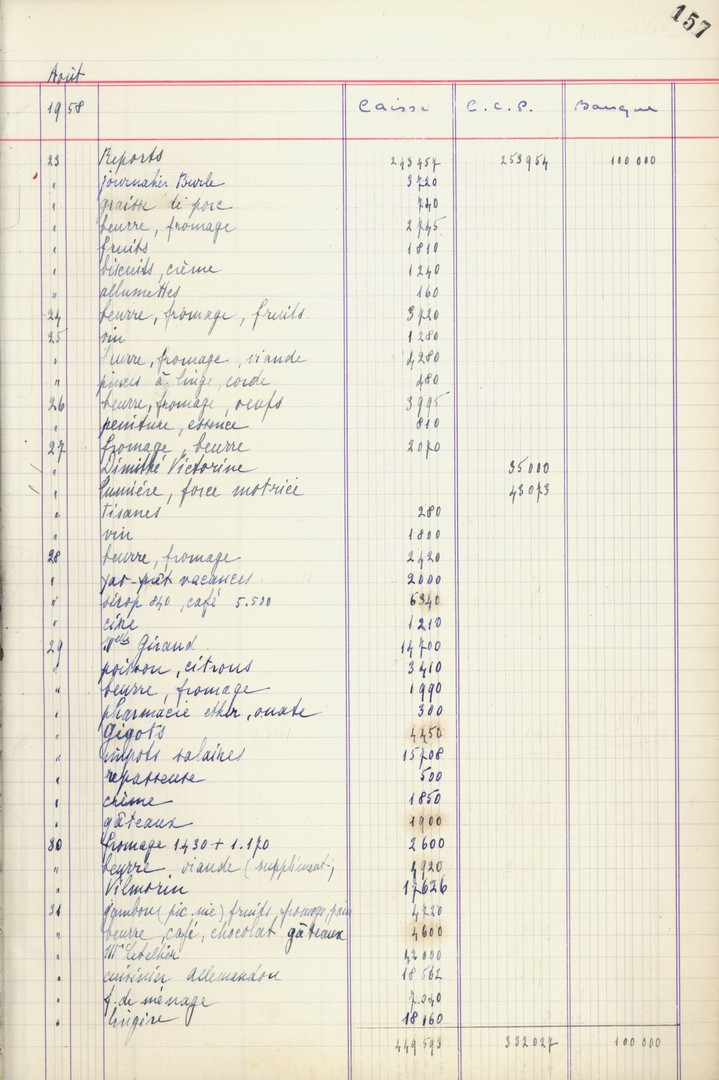 157
Août
1958 Caisse C.C.P. Banque
23 Reports 243457 253954 100 000
" journalier Burle 3720
" graisse de porc 740
" beurre, fromage 2745
" fruits 1810
" biscuits, crème 1240
" allumettes 160
24 beurre, fromage, fruits 3720
25 vin 1280
" beurre, fromage, viande 4280
" pinces à linge, corde 480
26 beurre, fromage, oeufs 3995
" peinture, essence 810
27 fromage, beurre 2070
" Victorine 35000
" lumière, force motrice 43073
" tisanes 280
" vin 1800
28 beurre, fromage 2420
" vacances 2000
" sirop 840, café 5.500 6340
" cire 1210
29 Giraud 14700
" poisson, citrons 3410
" beurre, fromage 1990
" pharmacie ether, ouate 300
" Gigots 4450
" impots salaires 15708
" repasseuse 500
" crème 1850
" gâteaux 1900
30 fromage 1430 + 1.170 2600
" beurre, viande (supplément) 4920
" Vilmorin 17626
31 jambon (pic-nic) fruits, fromage, pain 4720
" beurre, café, chocolat gâteaux 4600
" Mr Letellier 42000
" cuisinier Allemandou 18562
" f. de ménage 7.040
" lingère 18160
449593 332027 100 000